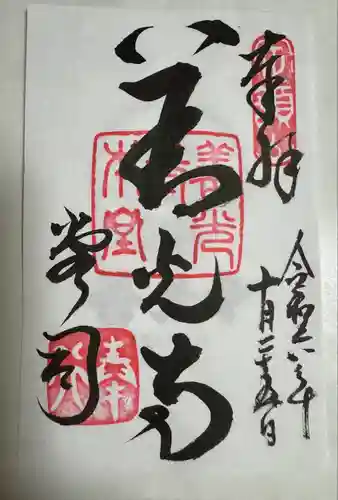 奉拝
令和六年
十月二十五日
善光寺
定額山
善光寺
本堂